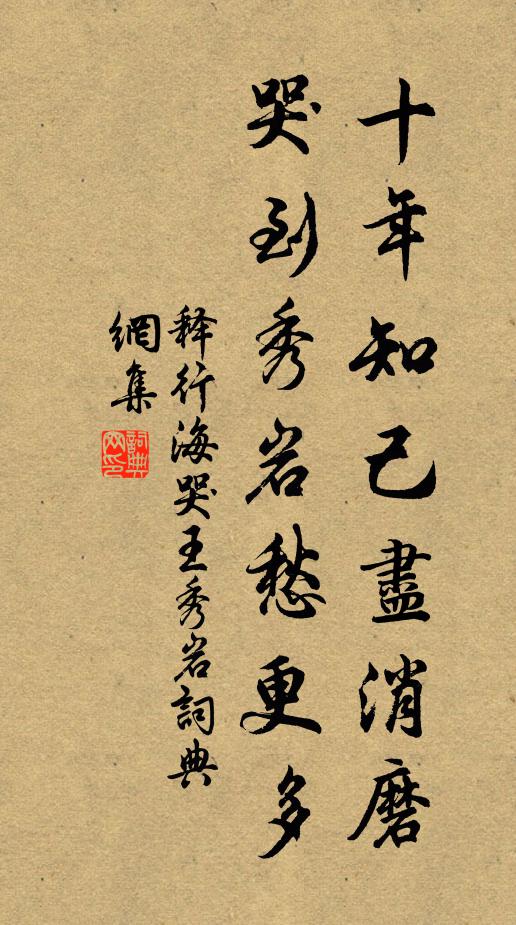 十年知己盡消磨
哭到秀岩愁更多
释行海哭王秀岩詞典
網集
詞典
网印